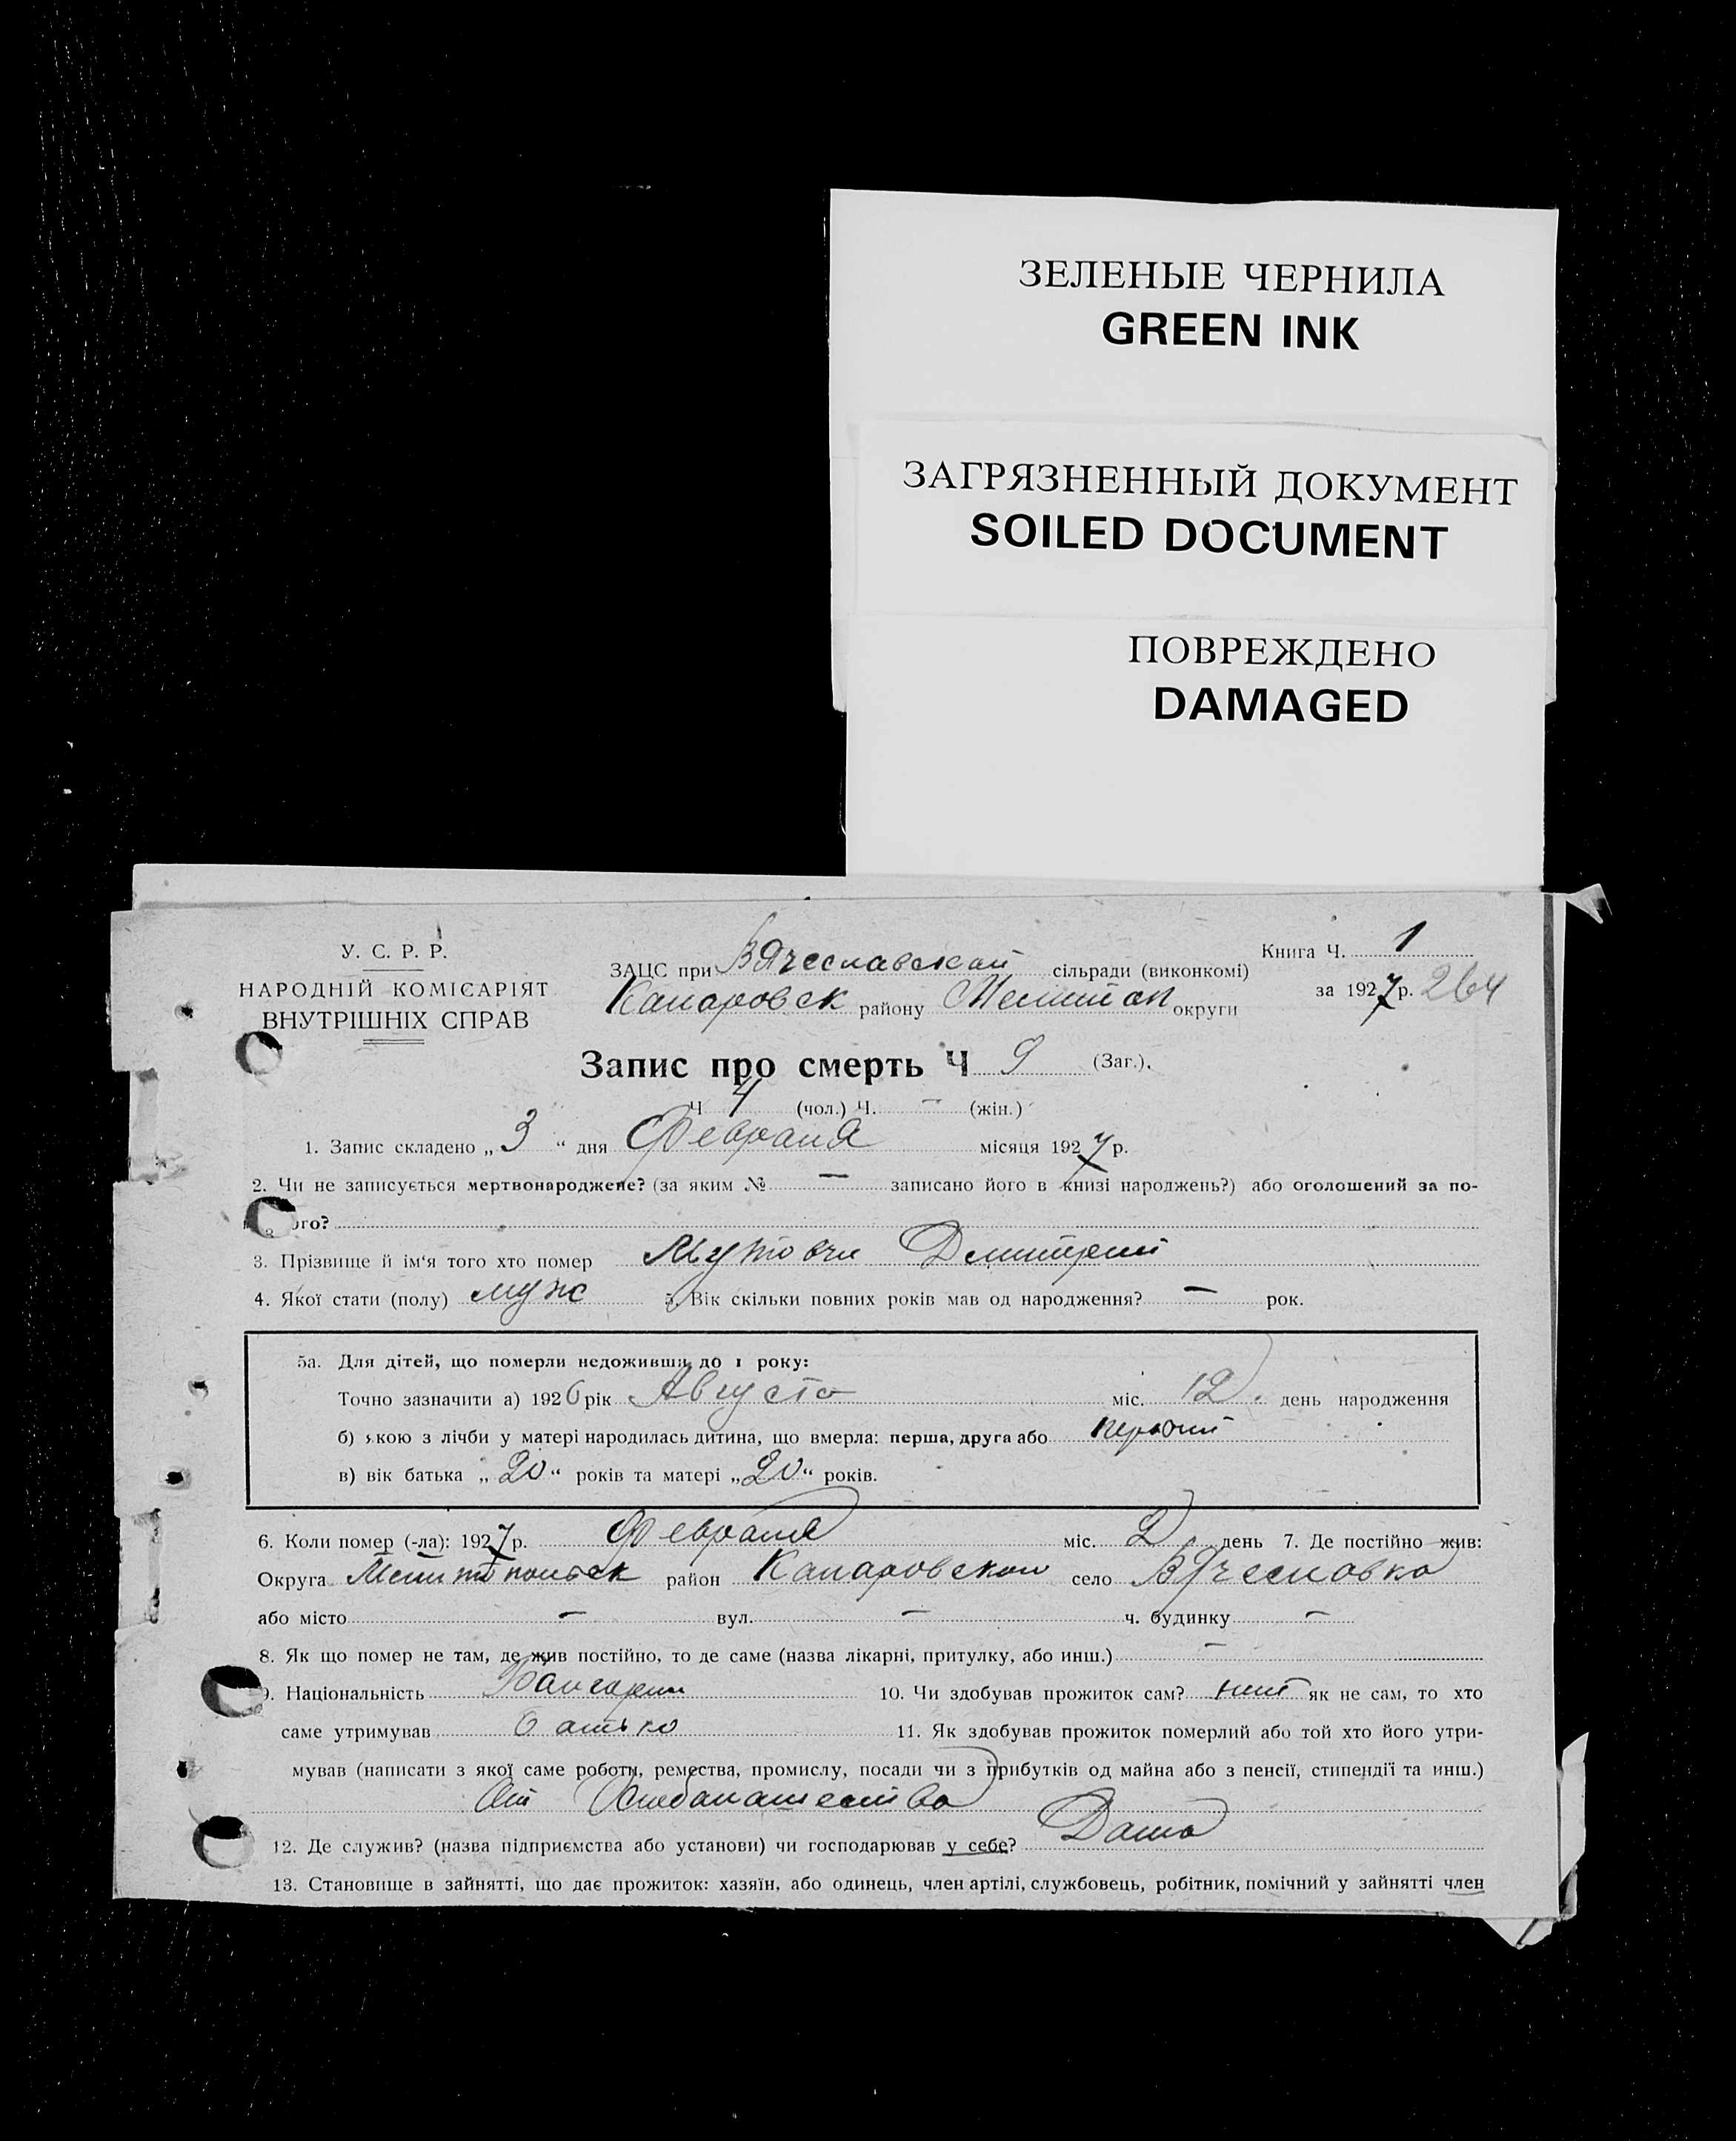 ЗЕЛЕНЫЕ ЧЕРНИЛА
GREEN INK
ЗАГРЯЗНЕННЫЙ ДОКУМЕНТ
SOILED DOCUMENT
ПОВРЕЖДЕНО
DAMAGED
У. С. Р. Р.
НАРОДНІЙ КОМІСАРІЯТ
ВНУТРІШНІХ СПРАВ
ЗАЦС при Вячеславской сільради (виконкомі)
Книга Ч. 1
Капаровск району Мелитоп округи
за 1927 р. 264
Запис про смерть Ч 9 (Заг.).
Ч 4 (чол.) Ч. — (жін.)
1. Запис складено „ 3 “ дня Февраля місяця 1927 р.
2. Чи не записується мертвонароджене? (за яким № — записано його в книзі народжень?) або оголошений за по-
ого?
3. Прізвище й ім'я того хто помер Дмитрий
4. Якої стати (полу) муж 5. Вік скільки повних років мав од народження? — рок.
5а. Для дітей, що померли недоживши до 1 року:
Точно зазначити а) 1926 рік Августа міс. 12 день народження
б) якою з лічби у матері народилась дитина, що вмерла: перша, друга або первий
в) вік батька „ 20 “ років та матері „ 20 “ років.
6. Коли помер (-ла): 1927 р. Февраля міс. 2 день 7. Де постійно жив:
Округа Мелитопольск район Капаровском село Вячеславка
або місто — вул. — ч. будинку —
8. Як що помер не там, де жив постійно, то де саме (назва лікарні, притулку, або инш.) —
9. Національність Балгарин 10. Чи здобував прожиток сам? нит як не сам, то хто
саме утримував батько 11. Як здобував прожиток померлий або той хто його утри-
мував (написати з якої саме роботи, ремества, промислу, посади чи з прибутків од майна або з пенсії, стипендії та инш.)
От Хлебапашества
12. Де служив? (назва підприємства або установи) чи господарював у себе? Дома
13. Становище в зайнятті, що дає прожиток: хазяїн, або одинець, член артілі, службовець, робітник, помічний у зайнятті член